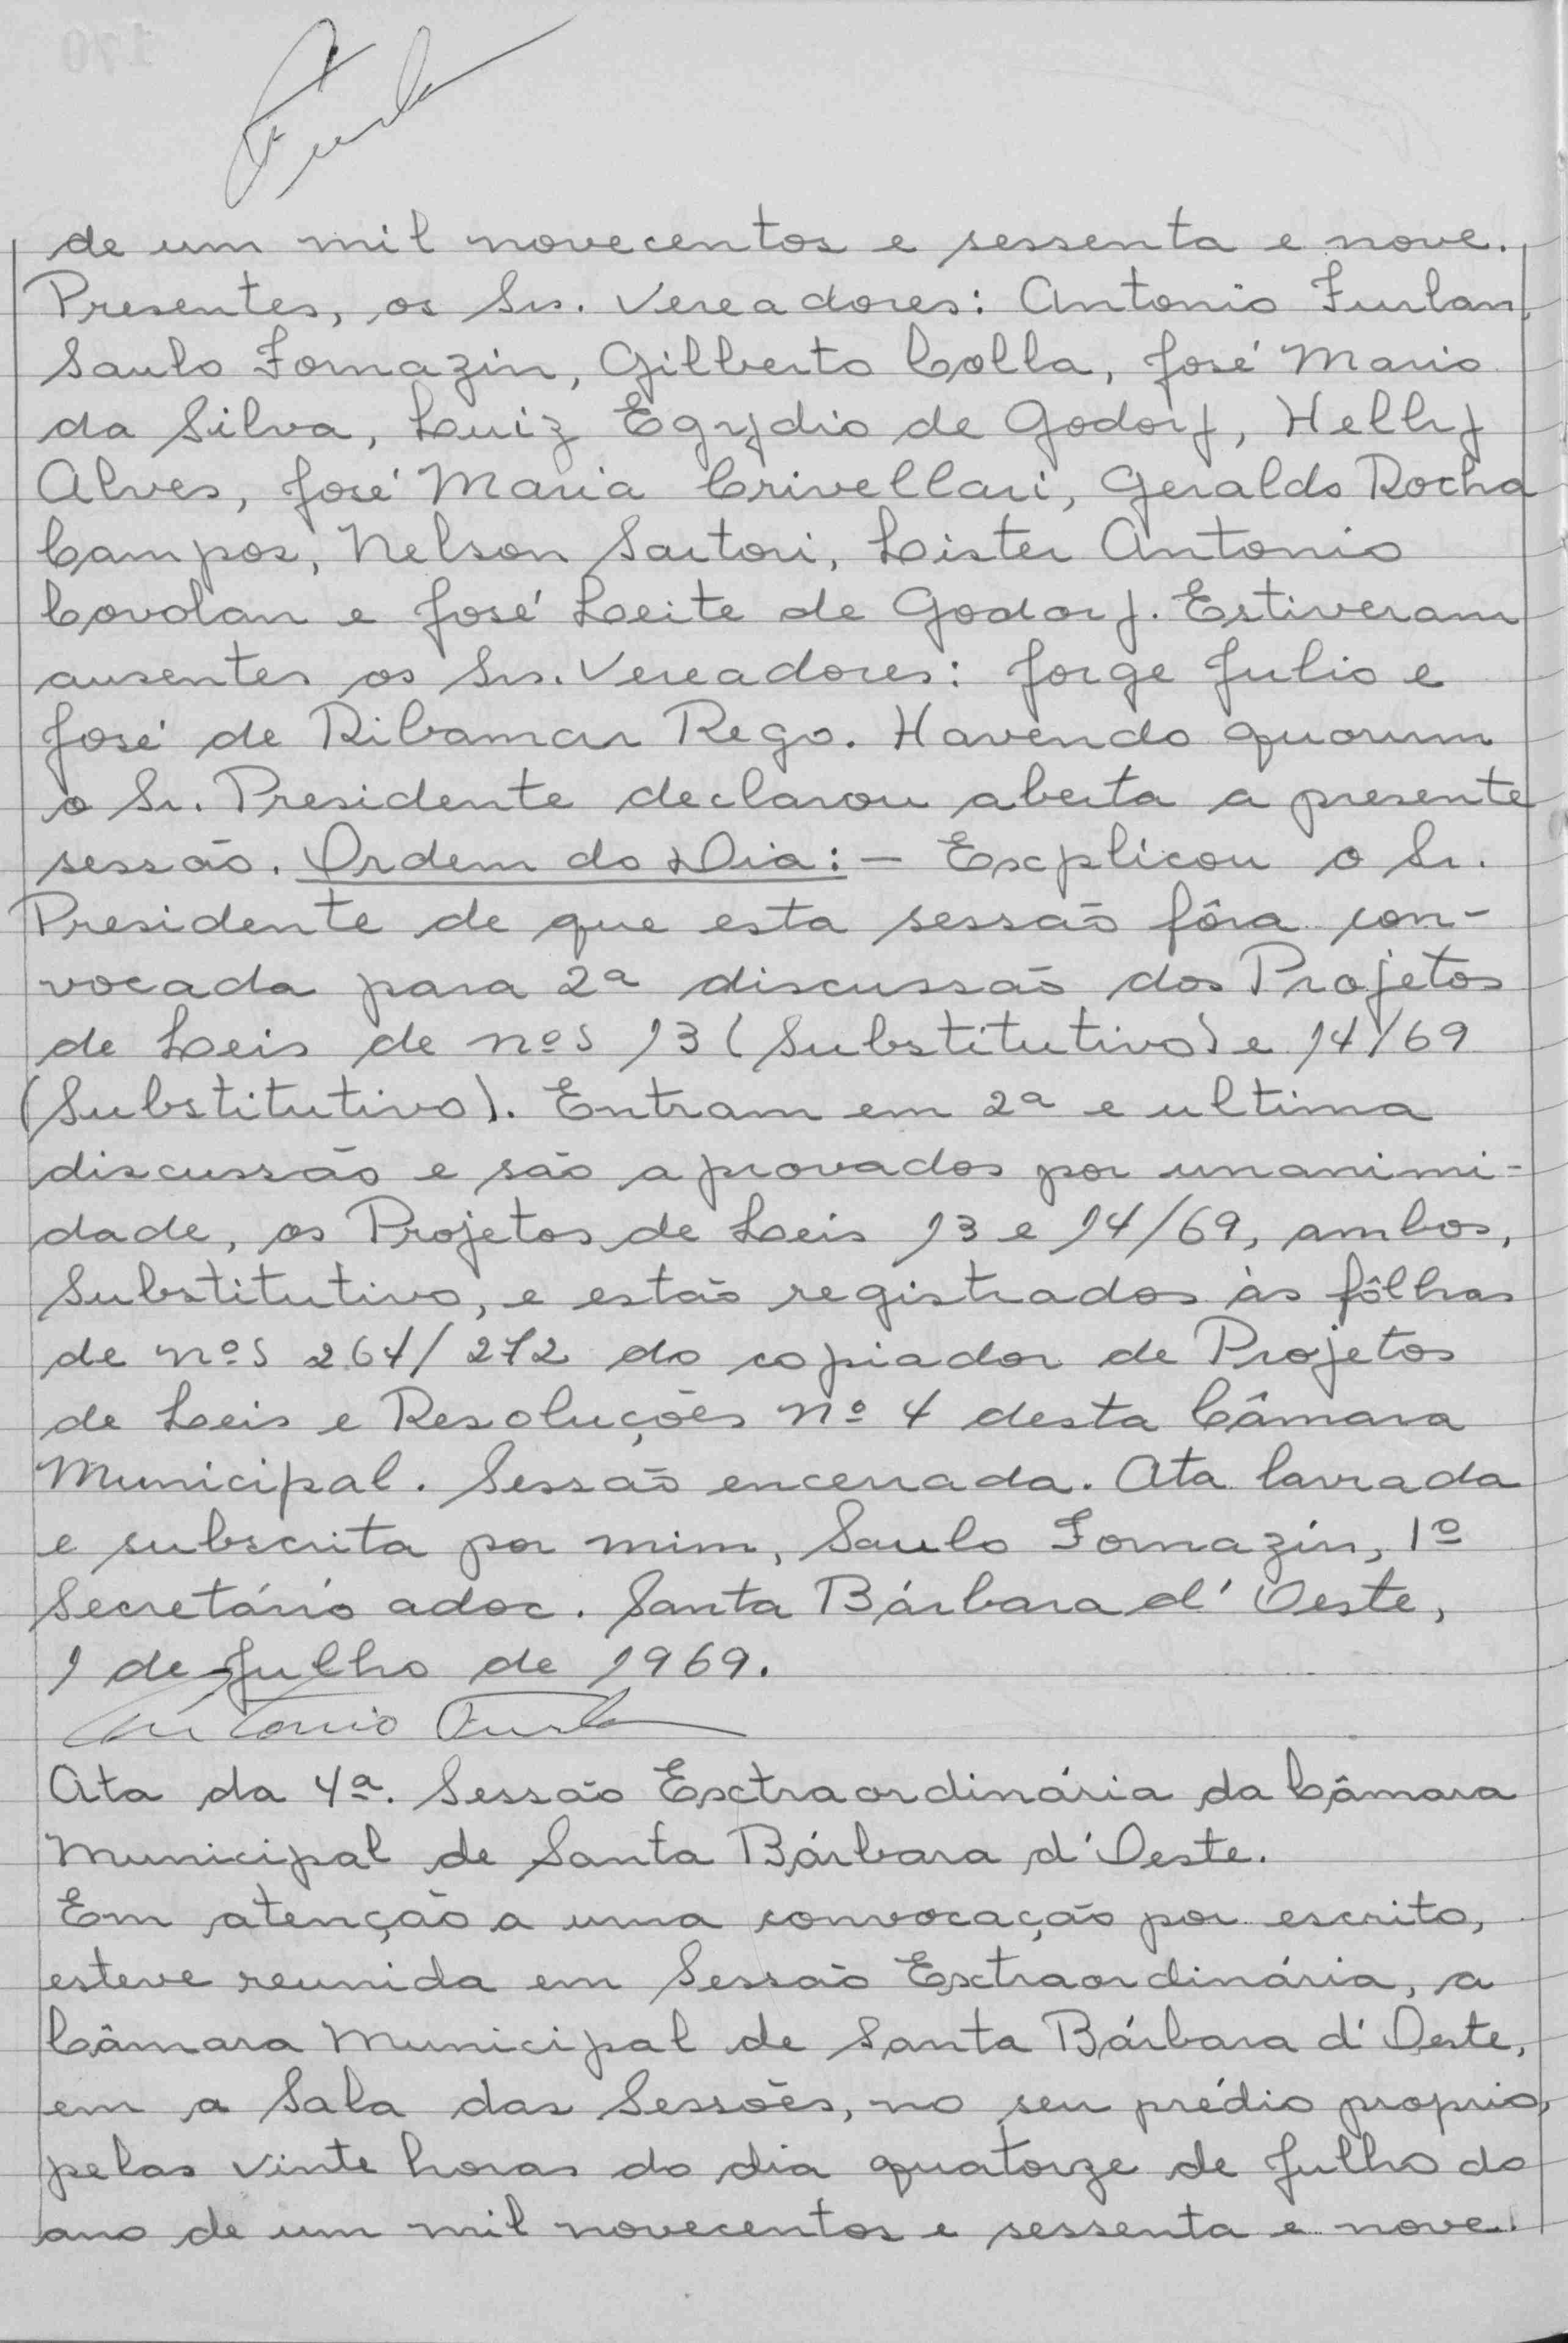 Furlan
de um mil novecentos e sessenta e nove.
Presentes, os Srs. Vereadores: Antonio Furlan,
Saulo Fornazin, Gilberto Colla, José Mario
da Silva, Luiz Egydio de Godoy, Helly
Alves, José Maria Crivellari, Geraldo Rocha
Campos, Nelson Sartori, Lister Antonio
Covolan e José Leite de Godoy. Estiveram
ausentes os Srs. Vereadores: Jorge Julio e
José de Ribamar Rego. Havendo quorum
o Sr. Presidente declarou aberta a presente
sessão. Ordem do Dia: — Explicou o Sr.
Presidente de que esta sessão fôra con-
vocada para 2ª discussão dos Projetos
de Leis de nºs 13 (Substitutivo) e 14/69
(Substitutivo). Entram em 2ª e ultima
discussão e são aprovados por unanimi-
dade, os Projetos de Leis 13 e 14/69, ambos,
Substitutivo, e estão registrados às fôlhas
de nºs 264/272 do copiador de Projetos
de Leis e Resoluções nº 4 desta Câmara
Municipal. Sessão encerrada. Ata lavrada
e subscrita por mim, Saulo Fornazin, 1º
Secretário adoc. Santa Bárbara d'Oeste,
1 de Julho de 1969.
Antonio Furlan
Ata da 4ª. Sessão Extraordinária da Câmara
Municipal de Santa Bárbara d'Oeste.
Em atenção a uma convocação por escrito,
esteve reunida em Sessão Extraordinária, a
Câmara Municipal de Santa Bárbara d'Oeste,
em a Sala das Sessões, no seu prédio proprio,
pelas vinte horas do dia quatorze de Julho do
ano de um mil novecentos e sessenta e nove.